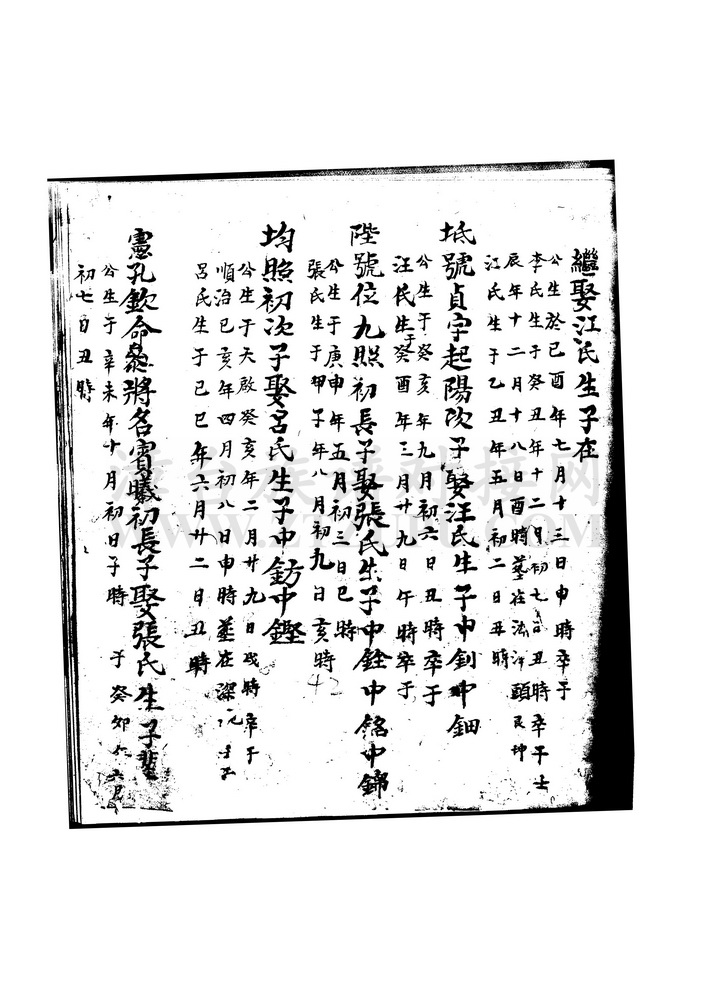 繼娶江氏生子在
公生於己酉年七月十三日申時卒于
李氏生于癸丑年十二月初七日丑時卒于壬
辰年十二月十八日酉時墓在頭艮坤
江氏生于乙丑年五月初二日丑時
坻號貞宇起陽次子娶汪氏生子中釗中鈿
公生于癸亥年九月初六日丑時卒于
汪氏生于癸酉年三月廿九日午時卒于
陛號位九照初長子娶張氏生子中銓中銘中錦
公生于庚申年五月初三日巳時
張氏生于甲子年八月初九日亥時
42
均照初次子娶呂氏生子中鈁中鏗
公生于天啟癸亥年二月廿九日戌時卒于
順治己亥年四月初八日申時墓在深坑壬子
呂氏生于己巳年六月廿二日丑時
憲孔欽命叅將名賓曦初長子娶張氏生子䨿
公生于辛未年十月初日子時于癸卯年六月
初七日丑時